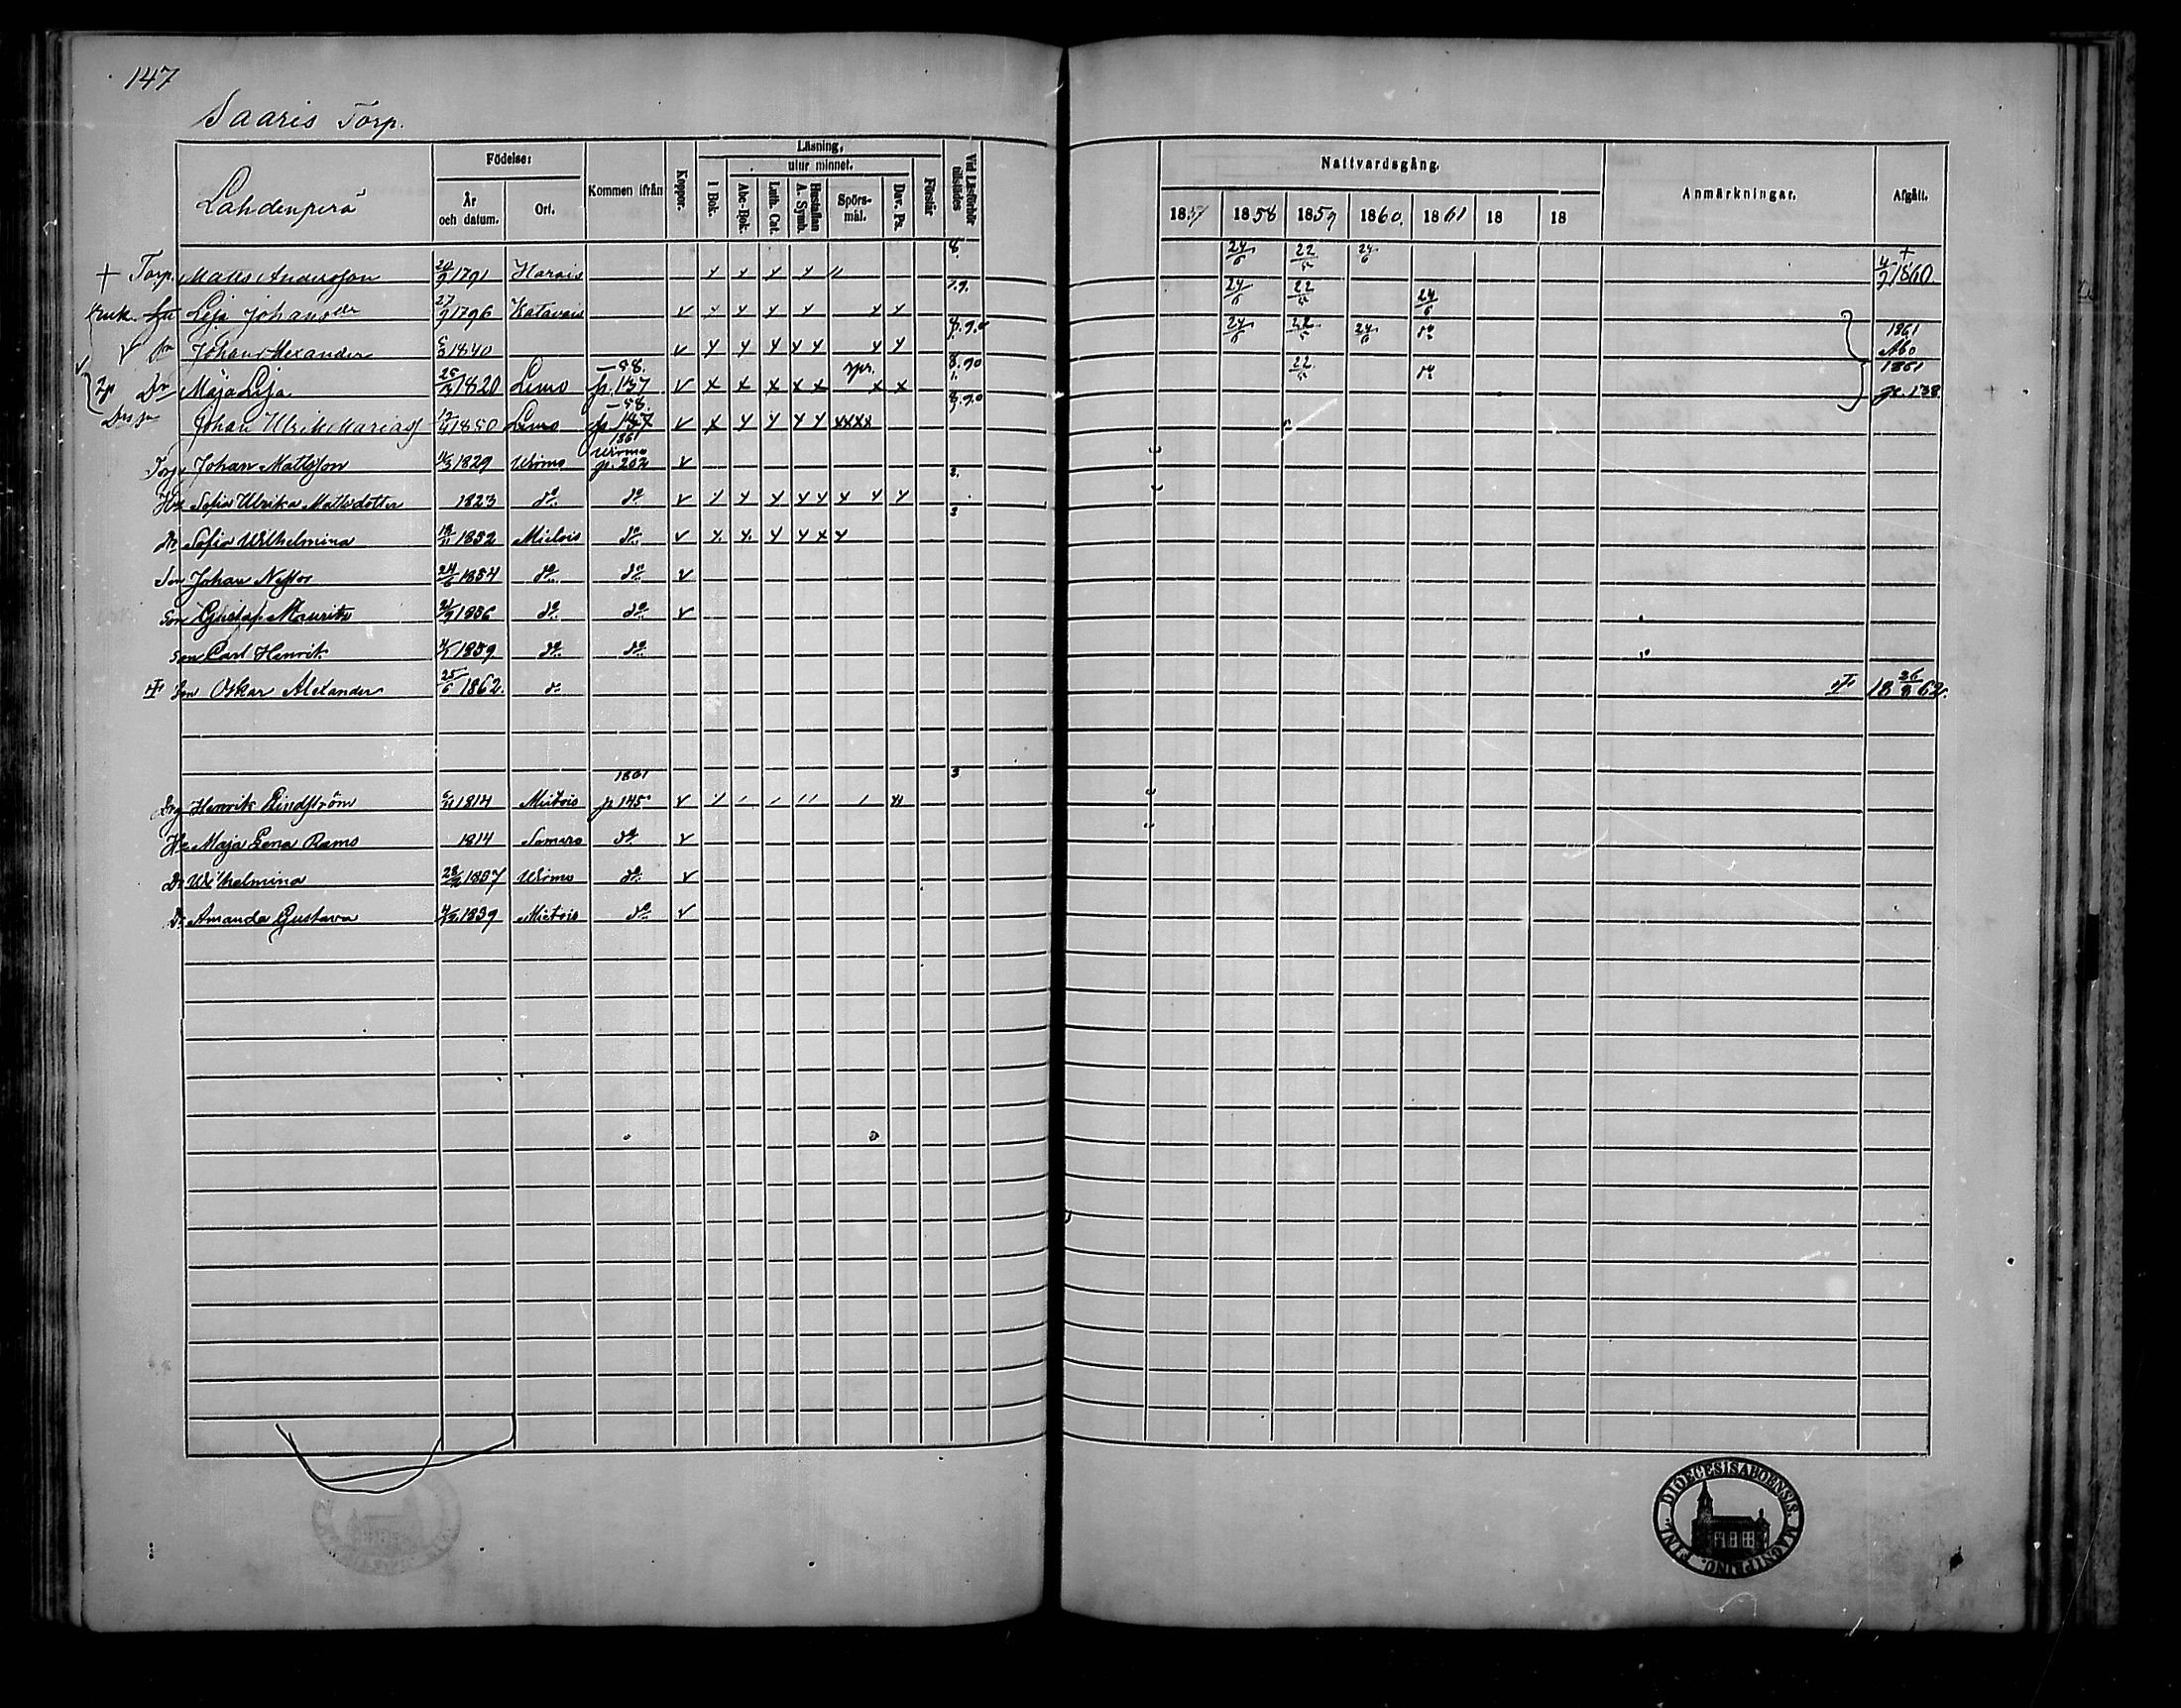 147
Saaris Torp.
Lahdenperä
Födelse:
År och datum.
Ort.
Kommen ifrån
Koppor.
Läsning,
utur minnet.
I Bok.
Abc-Bok.
Luth. Cat.
Hustaflan A. Symb.
Spörs-mål.
Dav. Ps.
Förstår
Vid Läsförhör tillstädes
Nattvardsgång.
1857 1858 1859 1860. 1861 18 18
Anmärkningar.
Afgått.
+ Torp. Matts Andersson 1791 Harais 8. 24/6 22/5 24/6 + 4/7 1860.
Enk. Lisa Johansdr 27/9 1796 Katavais 7.9. 24/6 22/5 24/6
Johan Alexander 1840 24/6 22/5 24/6 do 1861 Åbo
Dr Maja Lisa 1820 Lemo -58. p. 137 spr. 8.90 22/5 do 1861 p. 138
Johan Ulrik Mariass 1850 Lemo -58. p. 137 8.9.0
Torp Johan Mattsson 1829 Wirmo 1861 Wirmo p. 202
Hu Sofia Ulrika Mattsdotter 1823 do do 3.
Dr Sofia Wilhelmina 1852 Mietois do 3
Son Johan Nestor 24/6 1854 do do
Son Gustaf Mauritz 1856 do do
Son Carl Henrik 1859 do do
Son Oskar Alexander 25/6 1862. do 18 26/8 62.
Henrik Lindström 1814 Mietois 1861 p 145 3
Hu Maja Lena Ramo 1814 Somero do
Dr Wilhelmina 1857 Wirmo do
Dr Amanda Gustava 1859 Mietois do
FINL. DIOECESIS ABOENSIS. MAGNI PRINC.